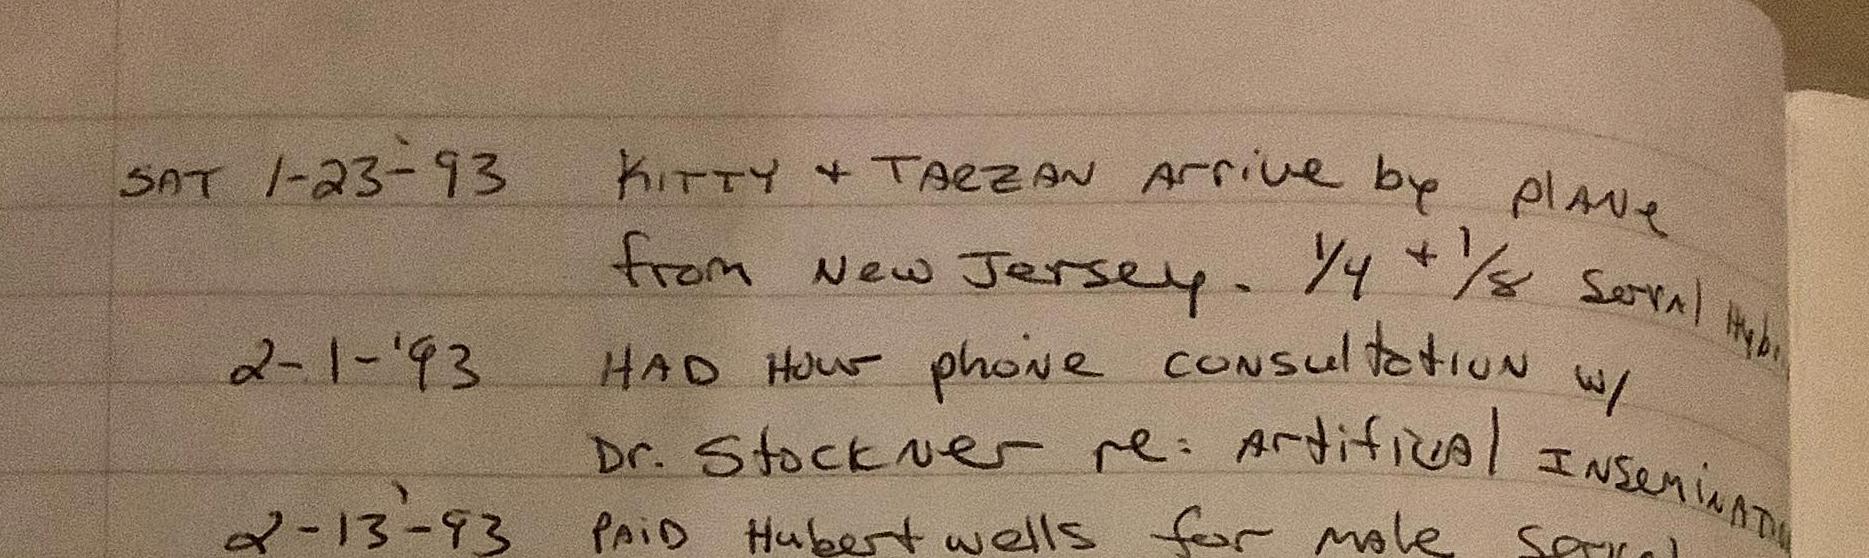 SAT 1-23-'93 KITTY + TARZAN Arrive by plane
from New Jersey. 1/4 + 1/8 Serval Hyb
2-1-'93 HAD Hour phone consultation w/
Dr. Stockner re: Artifical Inseminatio
2-13-'93 PAID Hubert wells for male Serval